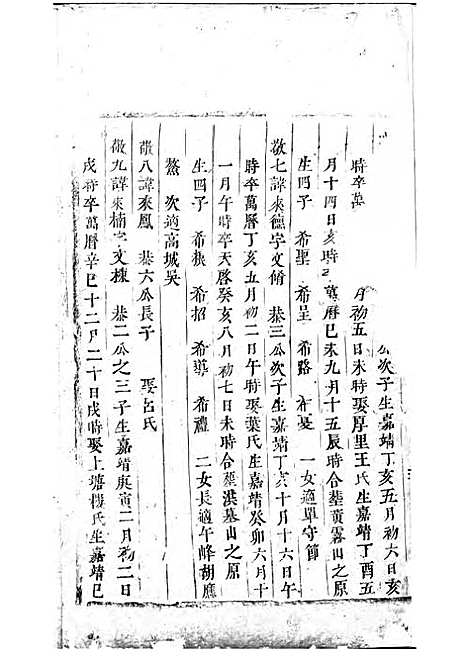 公次子生嘉靖丁亥五月初六日亥
時卒萬 月初五日未時娶厚里王氏生嘉靖丁酉五
月十四日亥時 萬曆己未九月十五辰時合塟黄霧山之原
生四子 希聖 希呈 希路 希憂 一女適單守節
敬七諱來德字文脩 恭三公次子生嘉靖丁亥十月十六日午
時卒萬曆丁亥五月二日午時娶葉氏生嘉靖癸卯六月十
一月午時卒天啓癸亥八月初七日未時合塟洪墓山之原
生四子 希横 希招 希導 希禮 二女長適午峰胡應
鰲 次適高城吳
敬八諱來鳳 恭六公長子 娶呂氏
敬九諱來楠字文棟 恭二公之三子生嘉靖庚寅二月初二日
戌時卒萬曆辛巳十二月二十日戌時娶上塘樓氏生嘉靖己